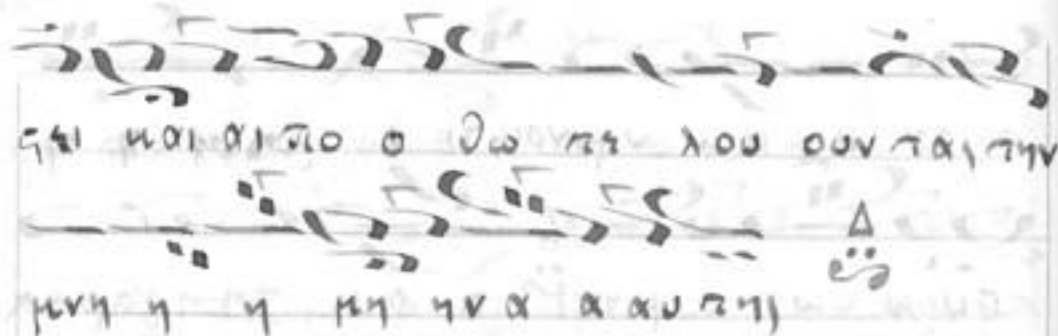 ςει και αι πο ο θω τε λου ουν ται την
μνη η η μη ηνα α αυ της
Δ